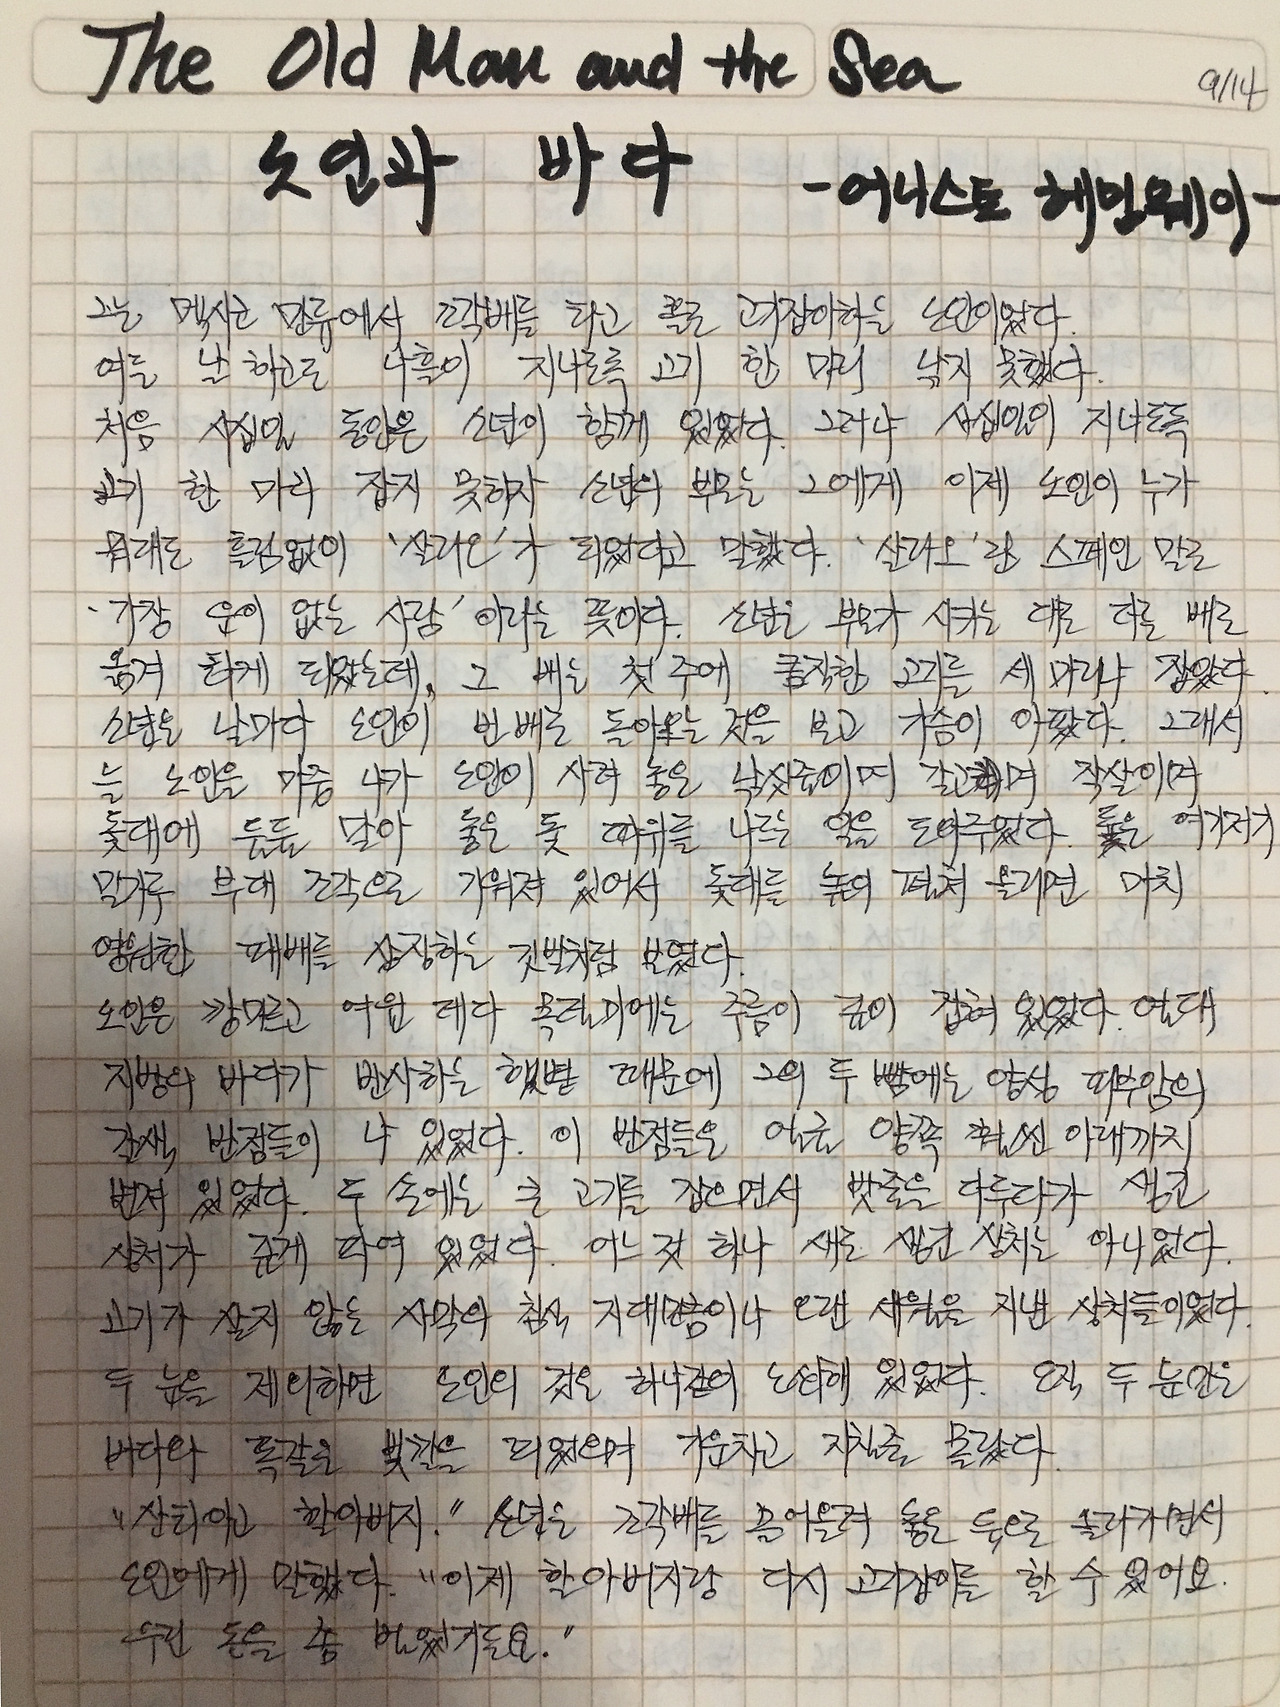 The Old Man and the Sea
9/14
노인과 바다
-어니스트 헤밍웨이-
그는 멕시코 만류에서 조각배를 타고 홀로 고기잡이하는 노인이었다.
여든 날 하고도 나흘이 지나도록 고기 한 마리 낚지 못했다.
처음 사십일 동안은 소년이 함께 있었다. 그러나 사십일이 지나도록
고기 한 마리 잡지 못하자 소년의 부모는 그에게 이제 노인이 누가
뭐래도 틀림없이 '살라오'가 되었다고 말했다. '살라오'란 스페인 말로
'가장 운이 없는 사람'이라는 뜻이다. 소년은 부모가 시키는 대로 다른 배로
옮겨 타게 되었는데, 그 배는 첫 주에 큼직한 고기를 세 마리나 잡았다.
소년은 날마다 노인이 빈 배로 돌아오는 것을 보고 가슴이 아팠다. 그래서
늘 노인을 마중 나가 노인이 사려 놓은 낚싯줄이며 갈고리며 작살이며
돛대에 둘둘 말아 둔 돛 따위를 나르는 일을 도와주었다. 돛은 여기저기
밀가루 부대 조각으로 기워져 있어서 돛대를 높이 펼쳐 올리면 마치
영원한 패배를 상징하는 깃발처럼 보였다.
노인은 깡마르고 여윈 데다 목덜미에는 주름이 깊이 잡혀 있었다. 열대
지방의 바다가 반사하는 햇볕 때문에 그의 두 뺨에는 양성 피부암의
갈색 반점들이 나 있었다. 이 반점들은 얼굴 양쪽 훨씬 아래까지
번져 있었다. 두 손에는 큰 고기를 잡으면서 밧줄을 다루다가 생긴
상처가 깊게 파여 있었다. 어느 것 하나 새로 생긴 상처는 아니었다.
고기가 살지 않는 사막의 침식 지대만큼이나 오랜 세월을 지낸 상처들이었다.
두 눈을 제외하면 노인의 것은 하나같이 노쇠해 있었다. 오직 두 눈만은
바다와 똑같은 빛깔을 띠었으며 기운차고 지칠줄 몰랐다.
"산티아고 할아버지." 소년은 조각배를 끌어올려 놓은 둑으로 올라가면서
노인에게 말했다. "이제 할아버지랑 다시 고기잡이를 할 수 있어요.
우린 돈을 좀 벌었거든요."